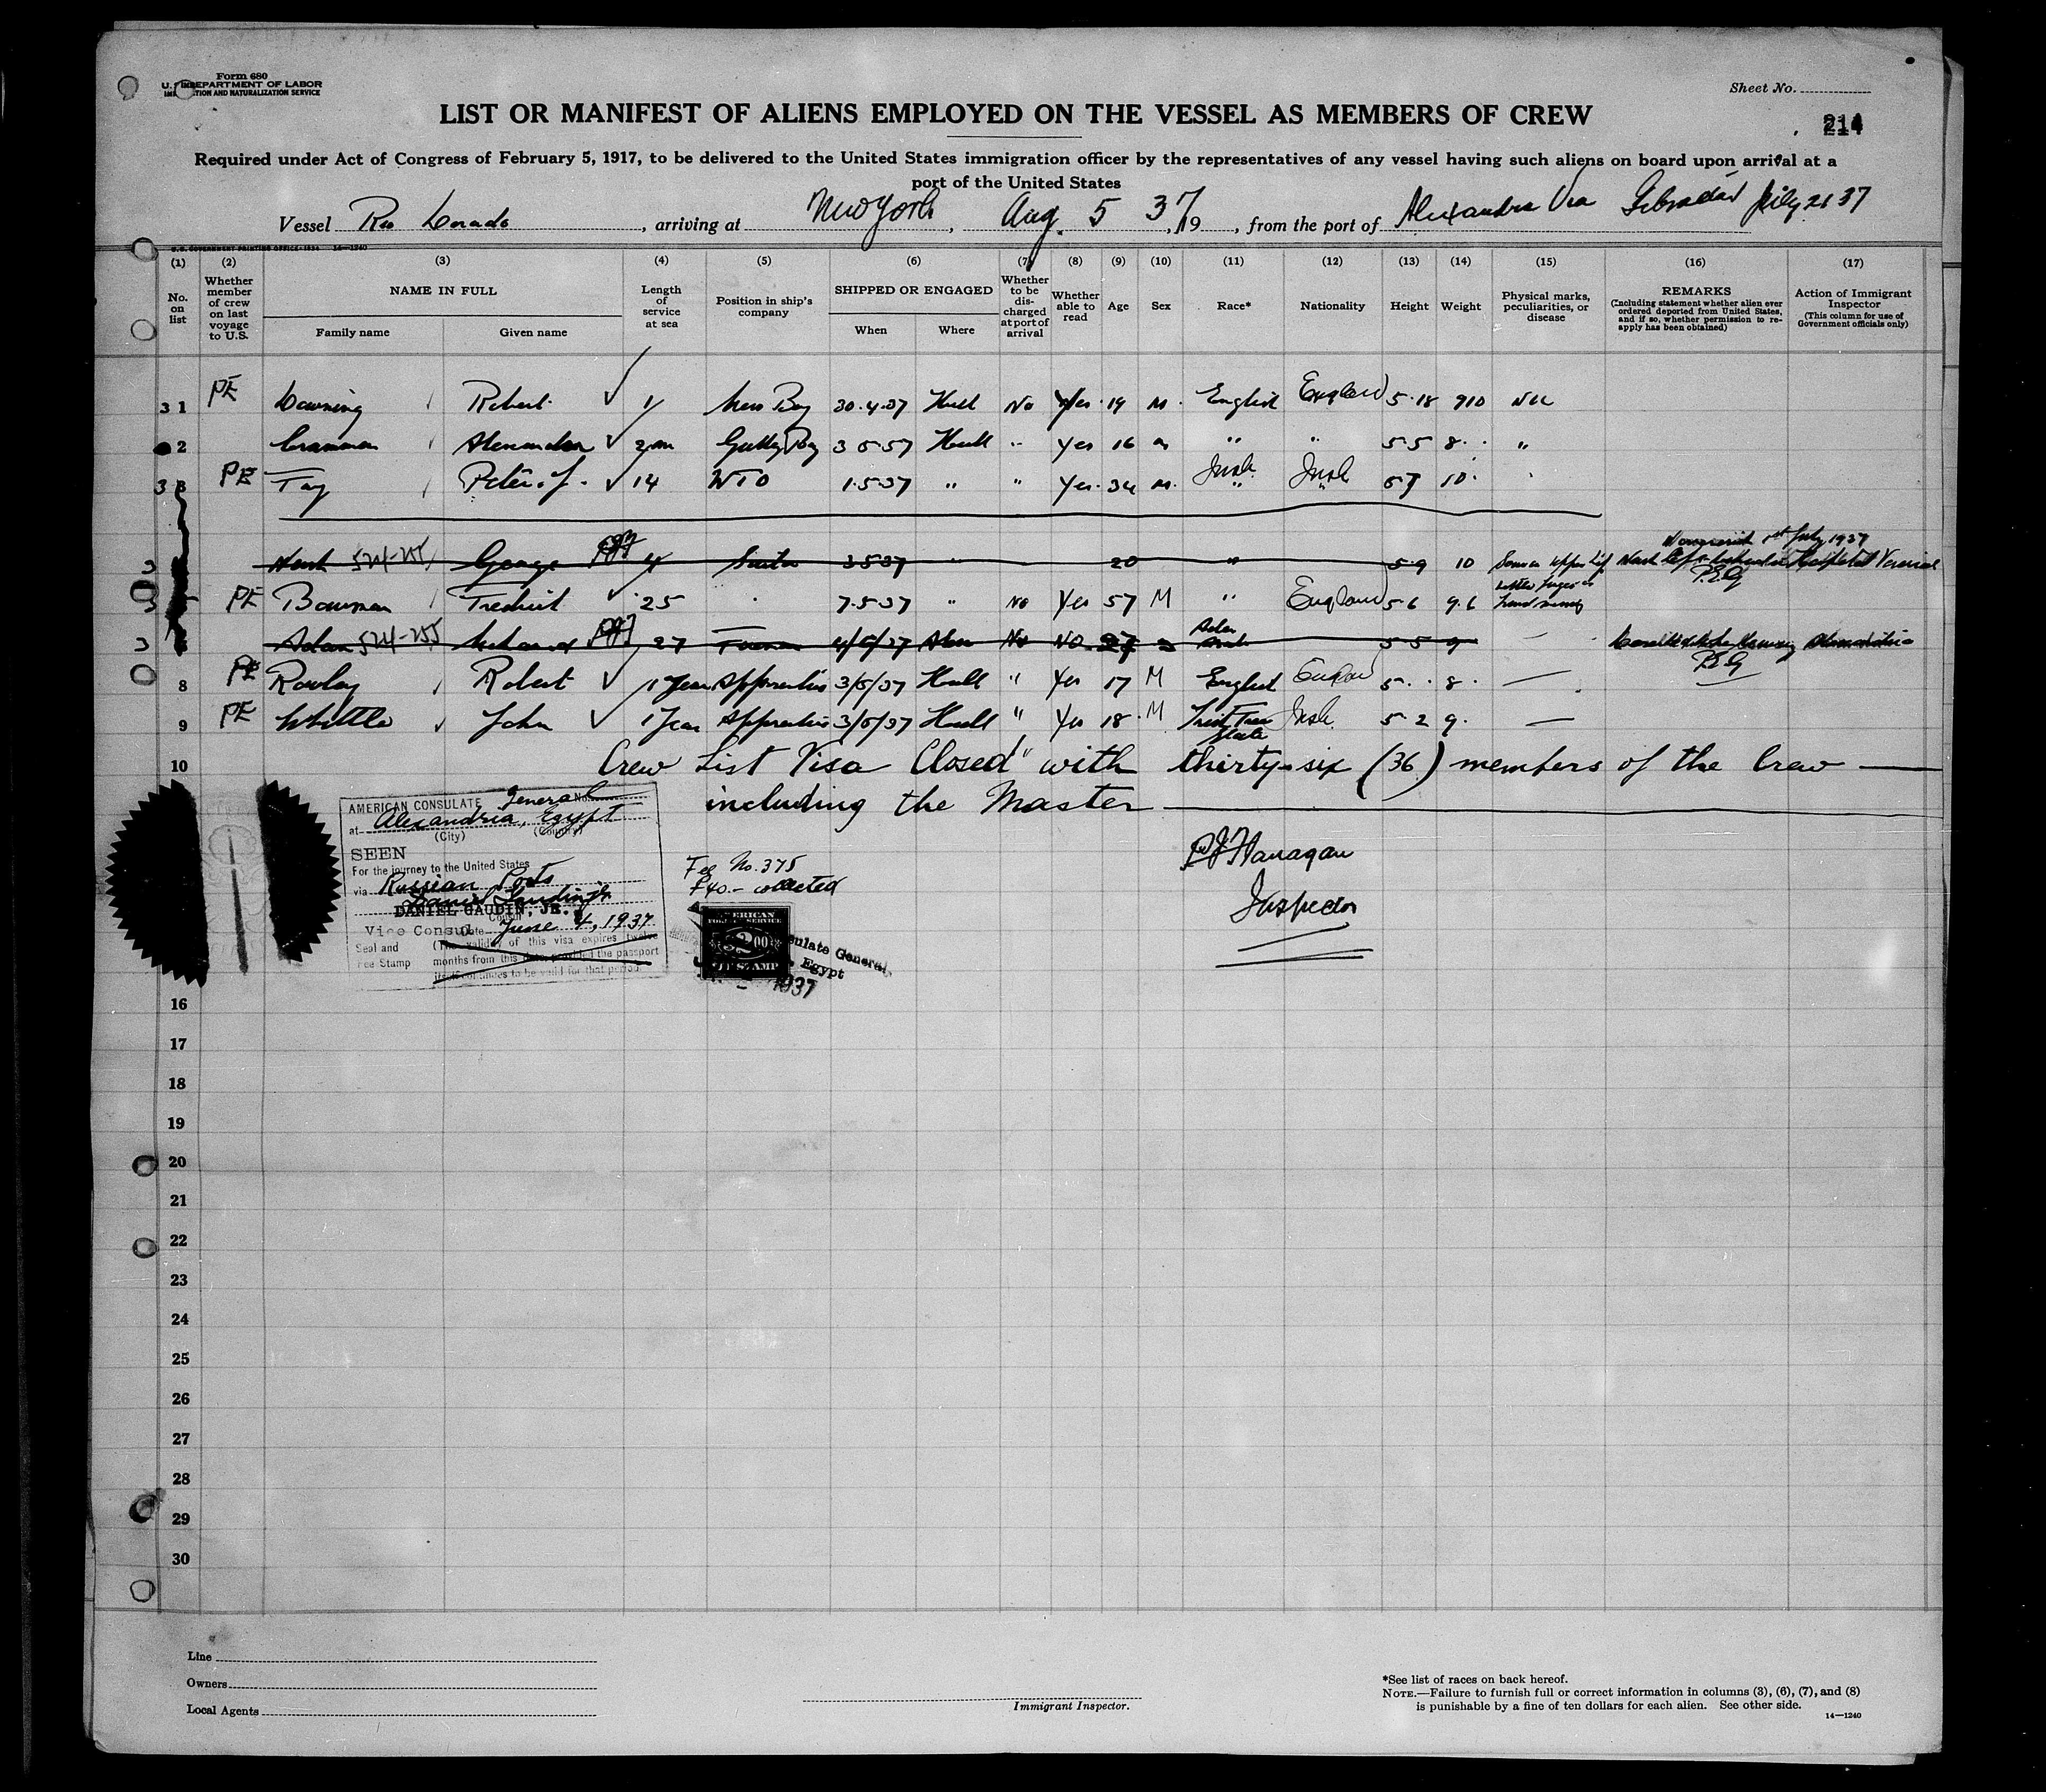 Form 680
U. S. DEPARTMENT OF LABOR
IMMIGRATION AND NATURALIZATION SERVICE
Sheet No.
LIST OR MANIFEST OF ALIENS EMPLOYED ON THE VESSEL AS MEMBERS OF CREW
214
Required under Act of Congress of February 5, 1917, to be delivered to the United States immigration officer by the representatives of any vessel having such aliens on board upon arrival at a
port of the United States
Vessel Rio Dorado, arriving at New York, Aug. 5 37, 19, from the port of Alexandria Via Gibraltar July 21 37
U.S. GOVERNMENT PRINTING OFFICE: 1934 14—1240
(1) (2) (3) (4) (5) (6) (7) (8) (9) (10) (11) (12) (13) (14) (15) (16) (17)
No. on list
Whether member of crew on last voyage to U.S.
NAME IN FULL
Family name Given name
Length of service at sea
Position in ship's company
SHIPPED OR ENGAGED
When Where
Whether to be discharged at port of arrival
Whether able to read
Age
Sex
Race*
Nationality
Height
Weight
Physical marks, peculiarities, or disease
REMARKS
(Including statement whether alien ever ordered deported from United States, and if so, whether permission to reapply has been obtained)
Action of Immigrant Inspector
(This column for use of Government officials only)
31 PE Downing Robert 1 Mess Boy 30.4.37 Hull No Yes 19 M. English England 5.18 910 Nil
2 Alexander 2 m Galley Boy 3 5 37 Hull " Yes 16 m " " 5 5 8 "
33 PE Peter J. 14 WTO 1.5.37 " " Yes 34 M. Irish Irish 5 7 10
1st July 1937
524-255 George 4 3 5 37 " 20 " 5 9 10 Hospital
PEG
PE Bowman 25 7.5.37 " No Yes 57 M " England 5 6 9.6
524-255 27 4/5/37 No NO 27 5 5 9 Alexandria
PEG
8 PE Rowley Robert 1 Year Apprentice 3/5/37 Hull " Yes 17 M English 5 8 —
9 PE Whittle John 1 Year Apprentice 3/5/37 Hull " Yes 18 M Irish Free State Irish 5 2 9 —
10 Crew List Visa Closed with thirty-six (36) members of the Crew
including the Master
AMERICAN CONSULATE General No.
at Alexandria, Egypt
(City) (Country)
SEEN
For the journey to the United States
via Russian Ports
DANIEL GAUDIN, JR.
Consul
Vice Consul Date June 4, 1937
Seal and Fee Stamp
(The validity of this visa expires twelve
months from this date, provided the passport
itself continues to be valid for that period.
Fee No. 375
collected
AMERICAN
FOREIGN SERVICE
$2.00
FEE STAMP
Consulate General
Egypt
1937
PJ Flanagan
Inspector
16
17
18
19
20
21
22
23
24
25
26
27
28
29
30
Line
Owners
Local Agents
Immigrant Inspector.
*See list of races on back hereof.
NOTE.—Failure to furnish full or correct information in columns (3), (6), (7), and (8)
is punishable by a fine of ten dollars for each alien. See other side.
14—1240